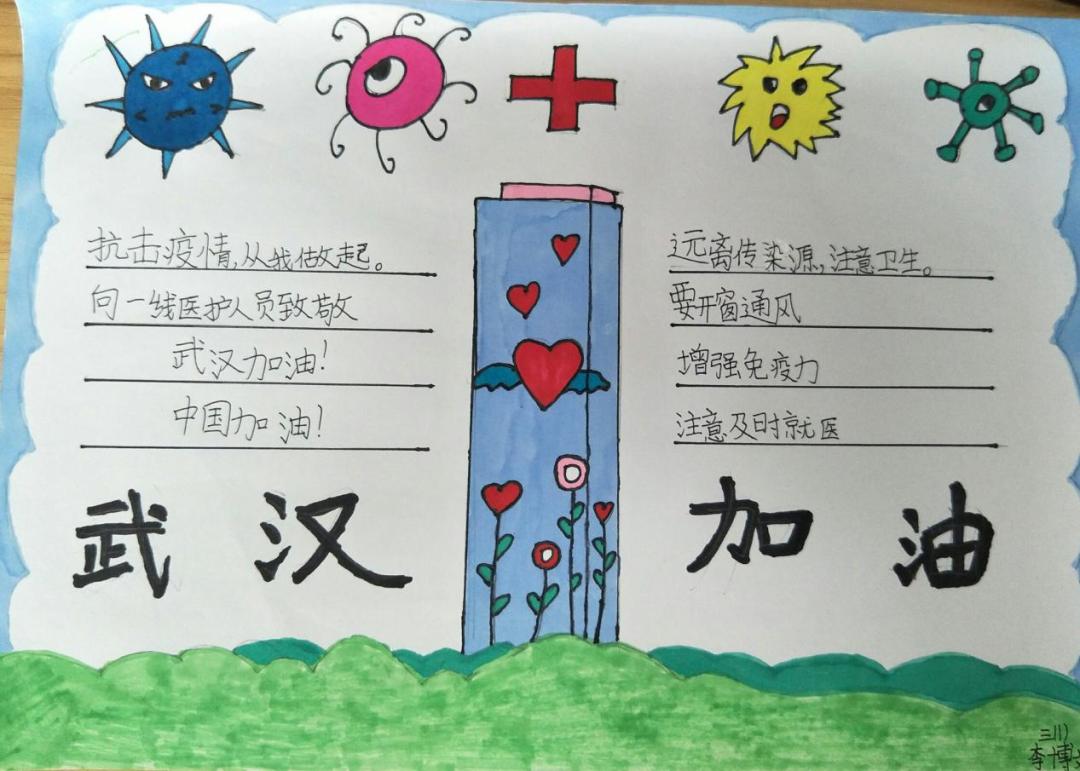 抗击疫情,从我做起。
向一线医护人员致敬
武汉加油!
中国加油!
远离传染源,注意卫生。
要开窗通风
增强免疫力
注意及时就医
武汉
加油
三(1)
李博